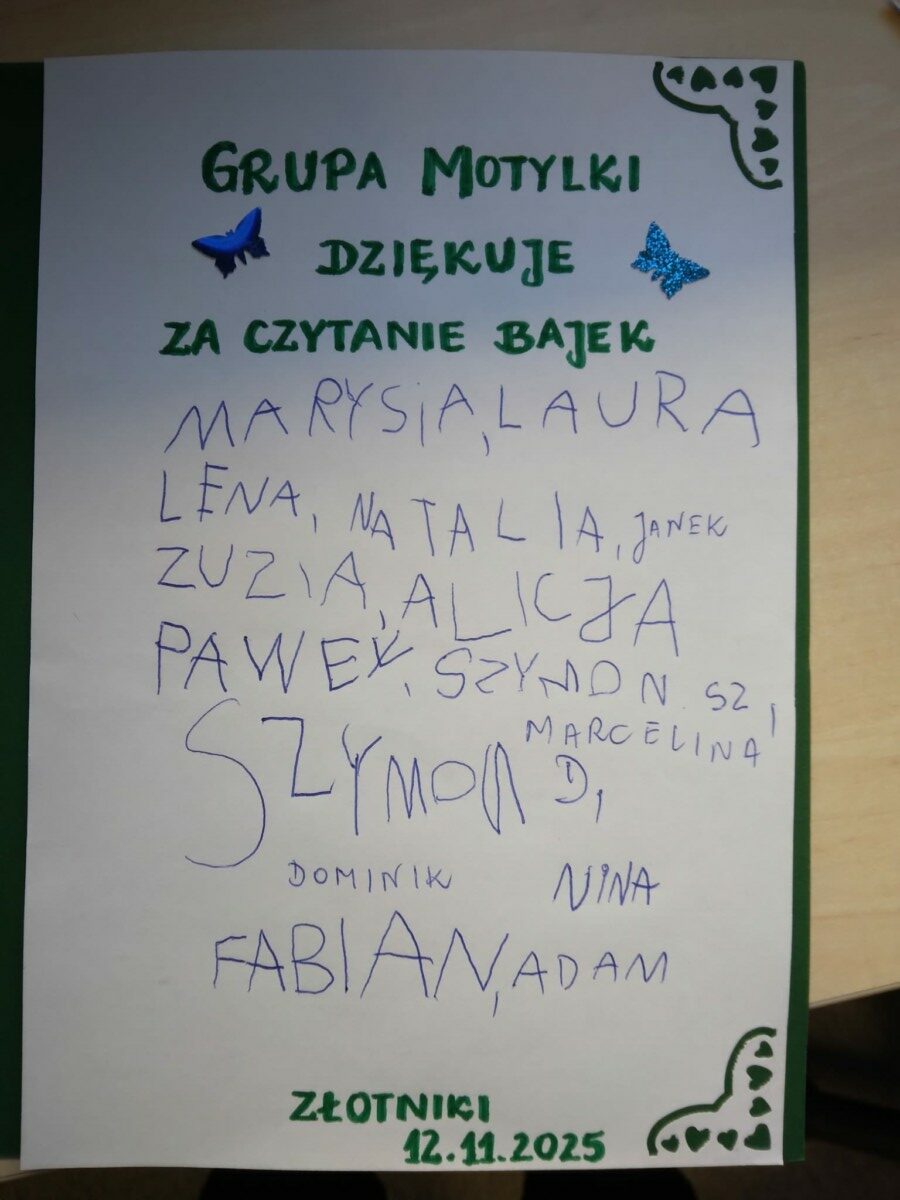 GRUPA MOTYLKI
DZIĘKUJE
ZA CZYTANIE BAJEK
MARYSIA, LAURA
LENA, NATALIA, JANEK
ZUZIA, ALICJA
PAWEŁ, SZYMON SZ,
MARCELINA
SZYMON D,
DOMINIK NINA
FABIAN, ADAM
ZŁOTNIKI
12.11.2025